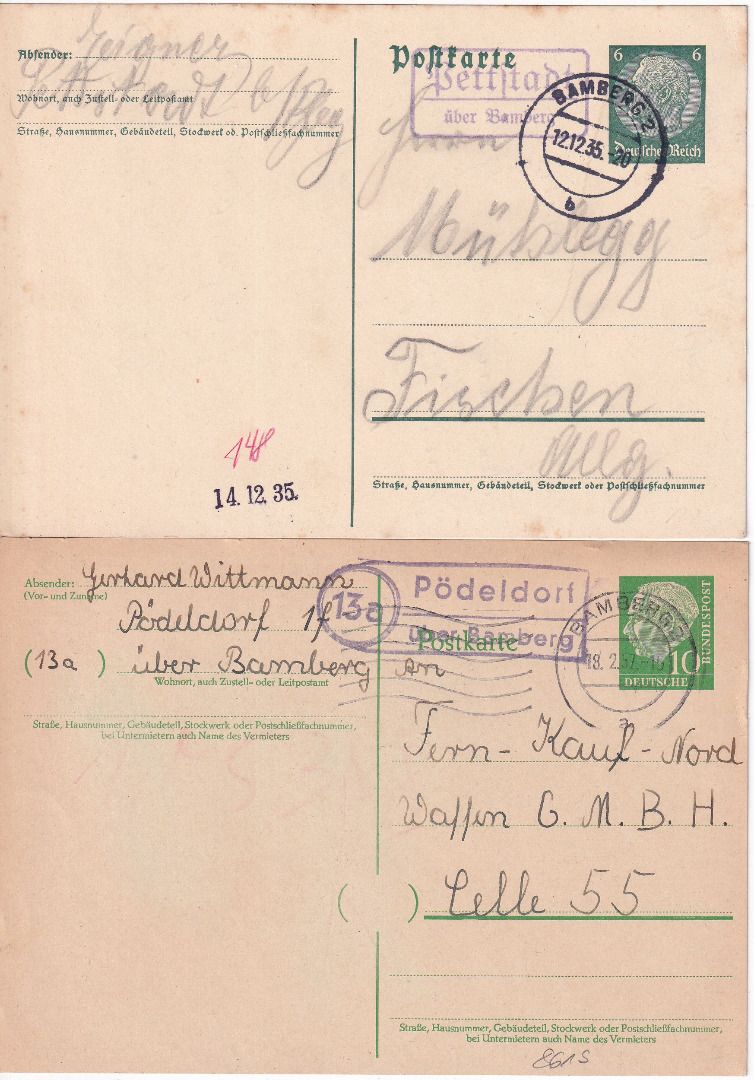 Absender: Zeigner
Pettstadt b/Bbg
Wohnort, auch Zustell- oder Leitpostamt
Straße, Hausnummer, Gebäudeteil, Stockwerk od. Postschließfachnummer
148
14.12.35.
Postkarte
Pettstadt
über Bamberg
BAMBERG 2
12.12.35.-20
b
6 6
Deutsches Reich
Herrn
Mühlegg
Fischen
Allg.
Straße, Hausnummer, Gebäudeteil, Stockwerk oder Postschließfachnummer
Absender: Gerhard Wittmann
(Vor- und Zuname)
Pödeldorf 1f
(13a) über Bamberg
Wohnort, auch Zustell- oder Leitpostamt
Straße, Hausnummer, Gebäudeteil, Stockwerk oder Postschließfachnummer,
bei Untermietern auch Name des Vermieters
13a
Pödeldorf
über Bamberg
Postkarte
BAMBERG 2
18.2.57.-18
a
10
DEUTSCHE
BUNDESPOST
An
Fern-Kauf-Nord
Waffen G.M.B.H.
( ) Celle 55
Straße, Hausnummer, Gebäudeteil, Stockwerk oder Postschließfachnummer,
bei Untermietern auch Name des Vermieters
861S